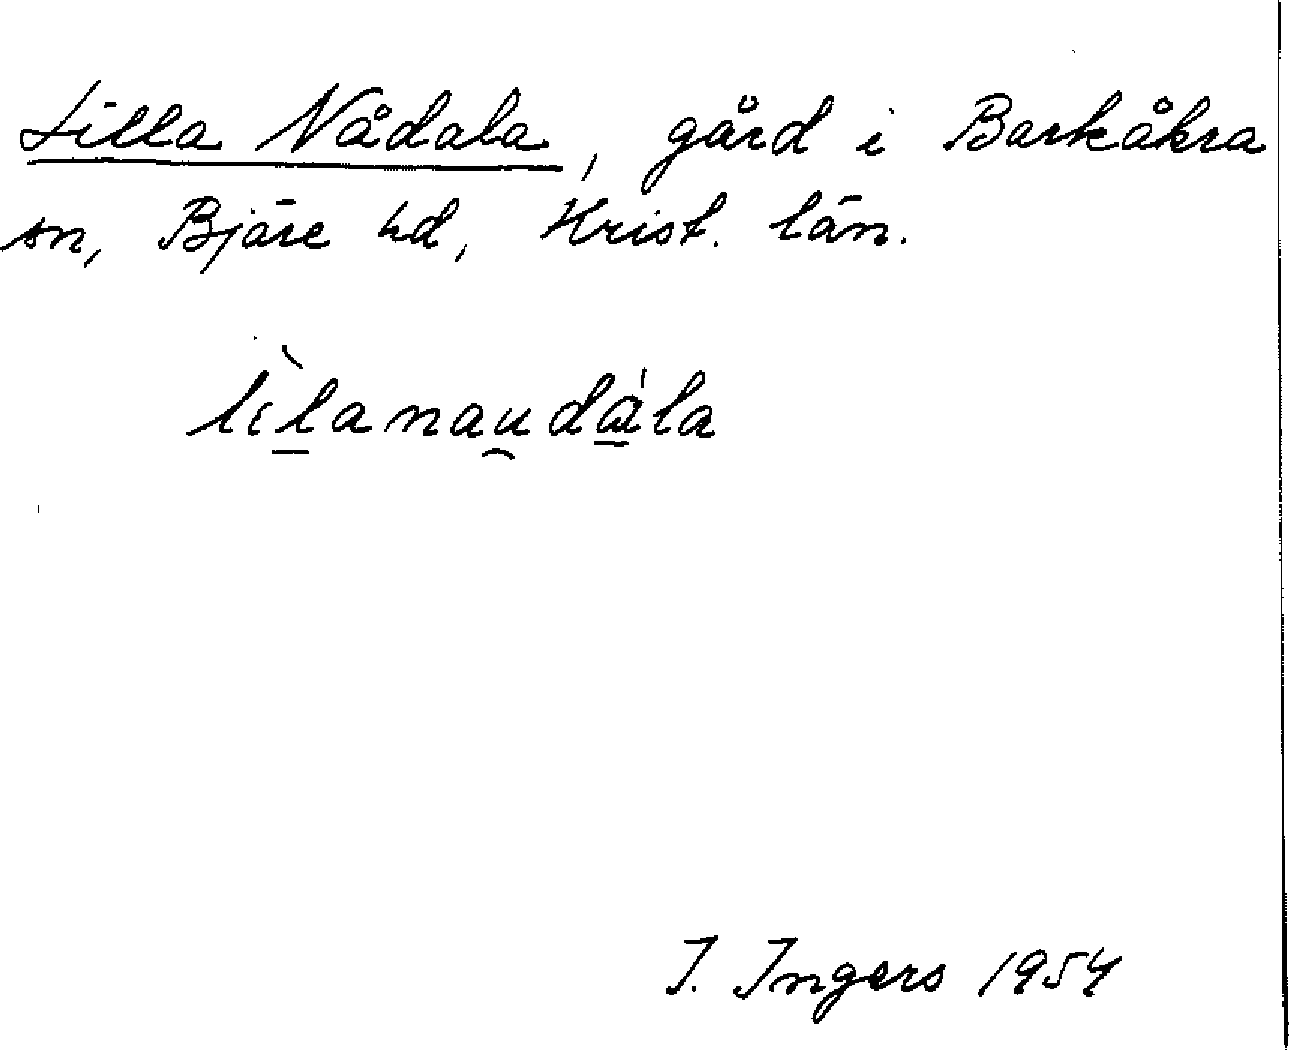 Lilla Nådala, gård i Barkåkra
sn, Bjäre hd, Krist. län.
lìlanaudála
I. Ingers 1954